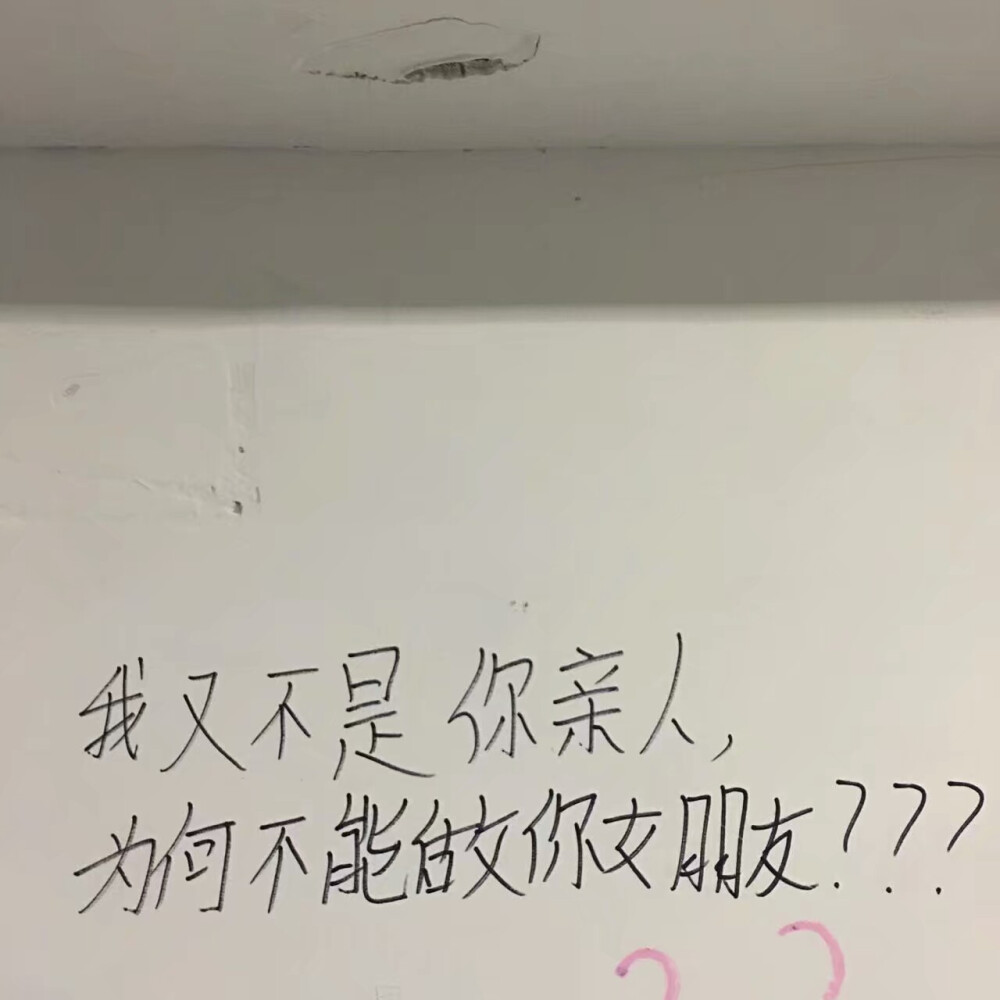 我又不是你亲人,
为何不能做你女朋友???
??